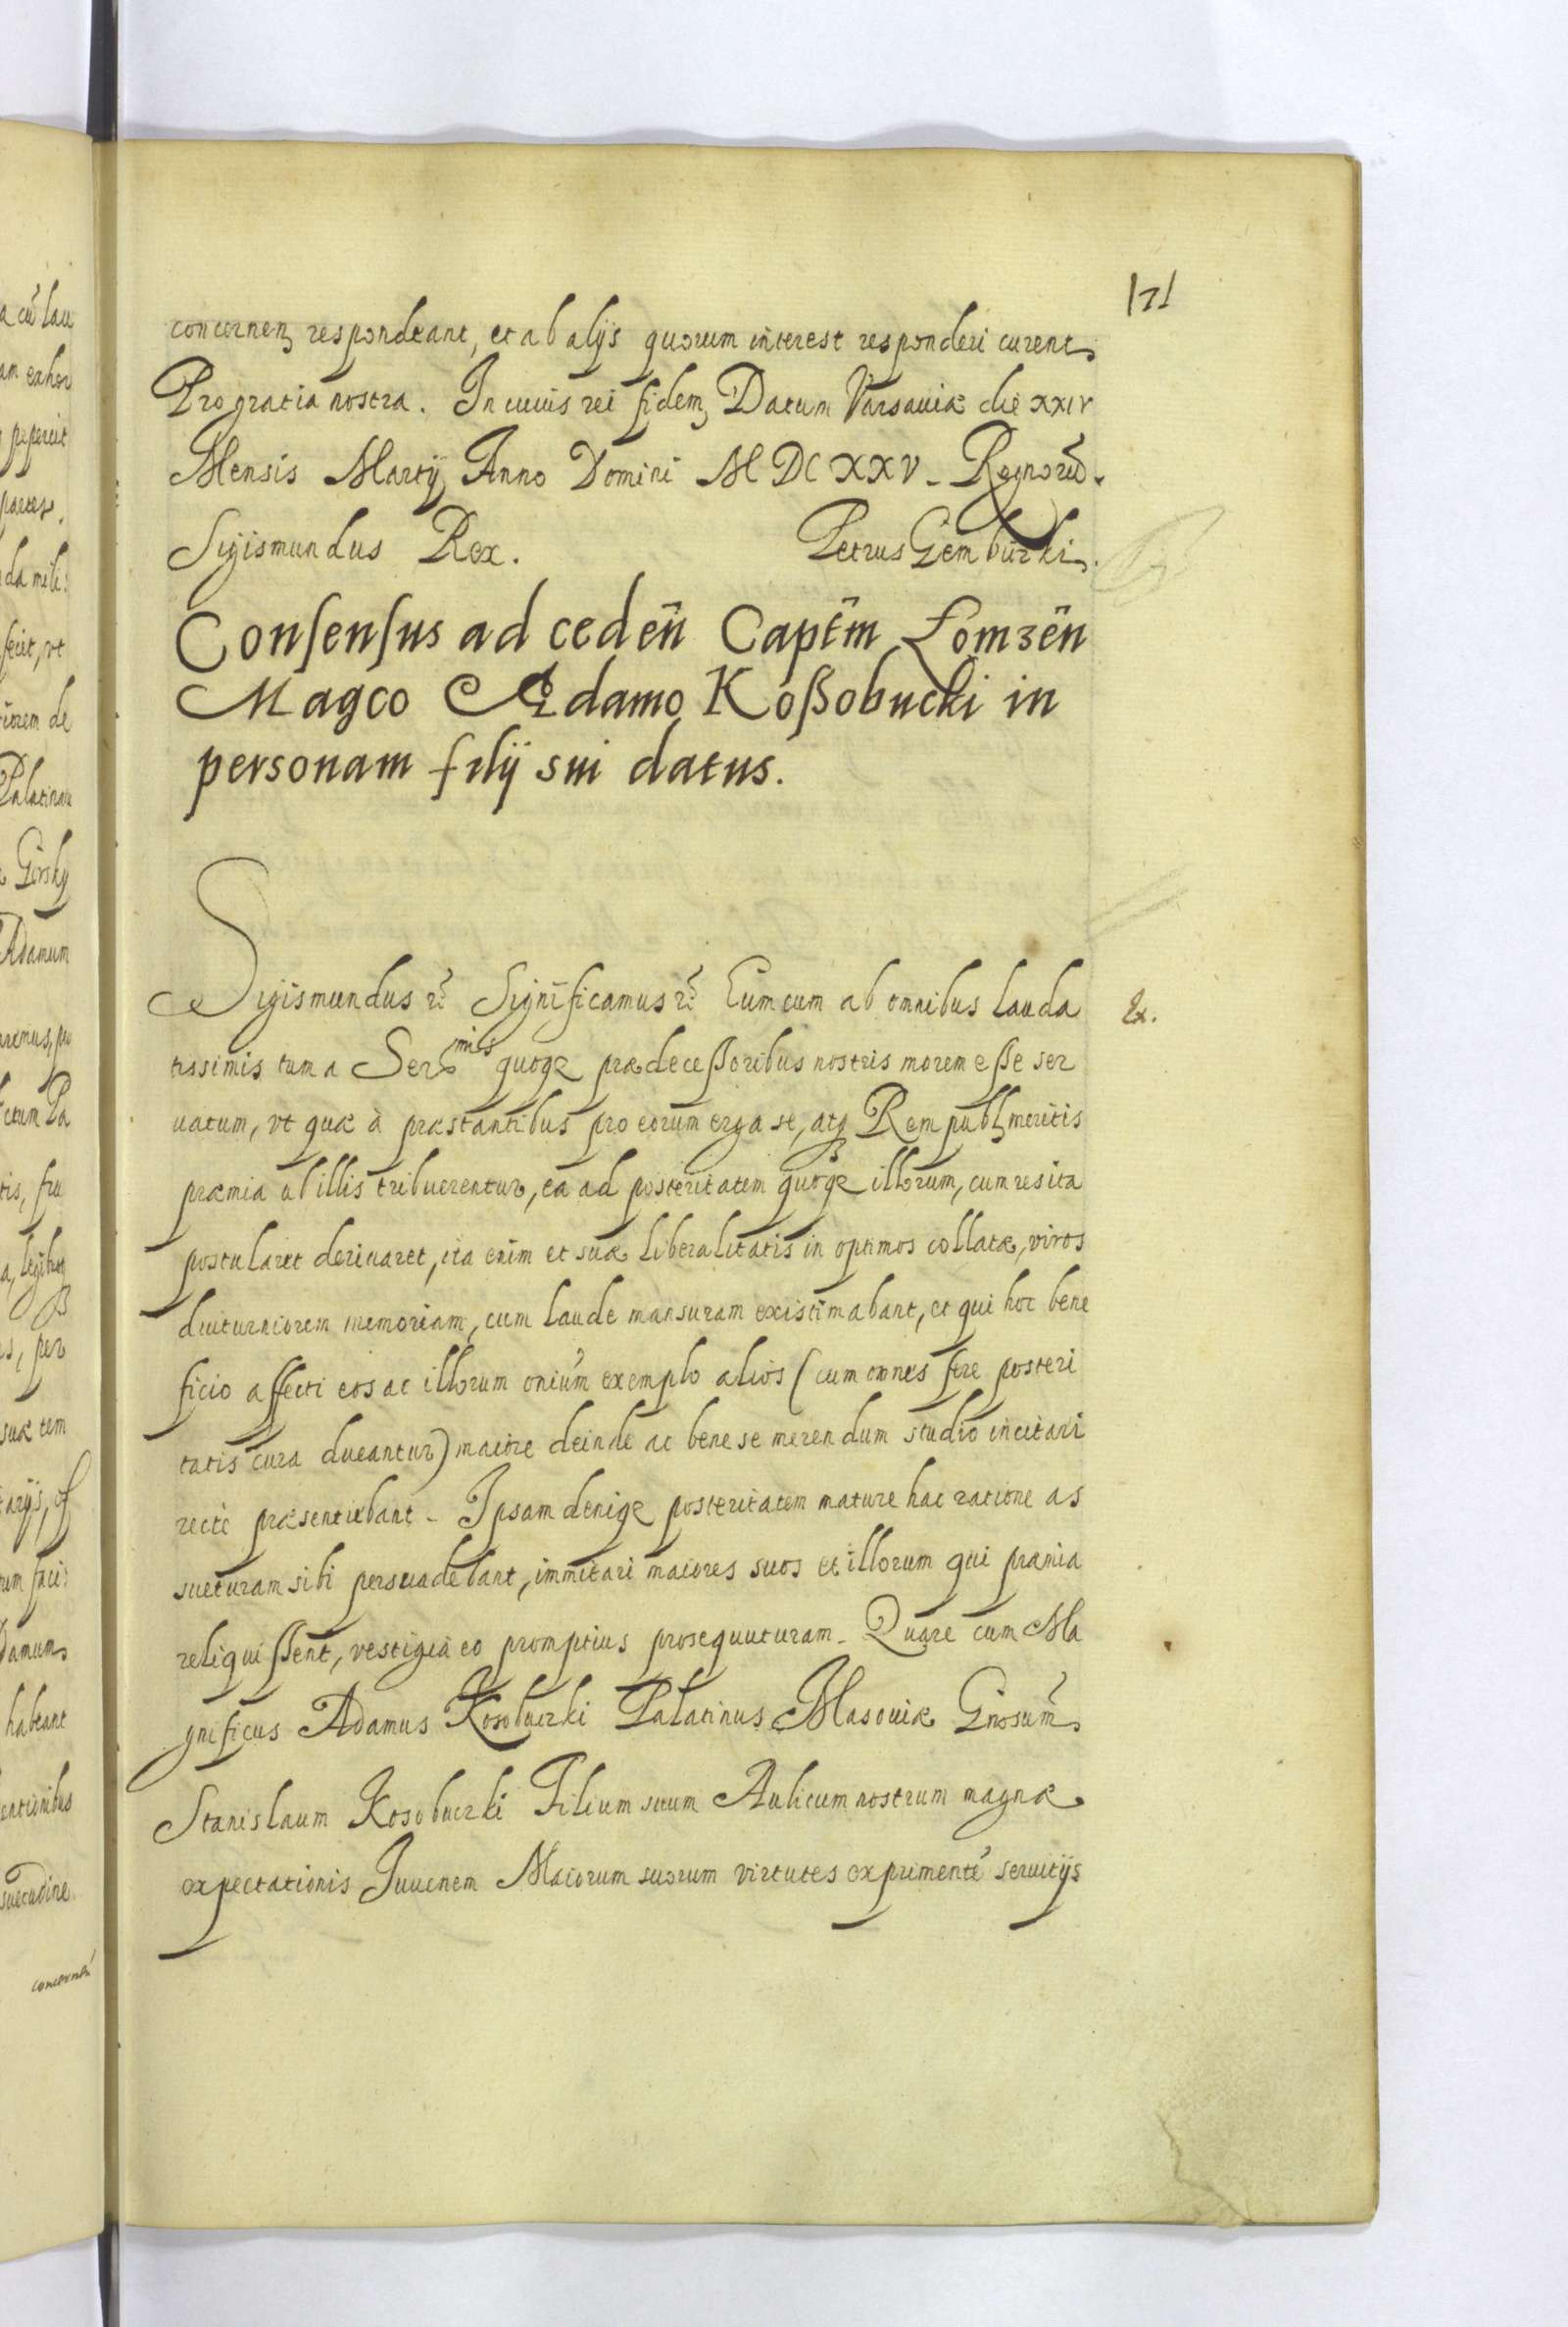 171
concernen respondeant, et ab alijs quorum interest responderi curent
Pro gratia nostra. In cuius rei fidem Datum Varsauiæ die XXIV
Mensis Martij Anno Domini MDCXXV. Regnorũ.
Sigismundus Rex. Petrus Gembicki.
Consensus ad cedeñ Captm̃ Łomzeñ
Magco Adamo Koßobucki in
personam filij sui datus.
Sigismundus &c. Significamus &c. Cum cum ab omnibus lauda
Ex.
tissimis tum a Ser^mis quoqȝ prædeceßoribus nostris morem eße ser
uatum, vt quæ à præstantibus pro eorum erga se, atqȝ Rempubl meritis
præmia ab illis tribuerentur, ea ad posteritatem quoqȝ illorum, cum res ita
postularet deriuaret, ita enim et suæ liberalitatis in optimos collatæ, viros
diuturniorem memoriam, cum laude mansuram existimabant, et qui hoc bene
ficio affecti eos ac illorum oniũm exemplo alios (cum omnes fere posteri
tatis cura ducantur) maiore deinde ac bene se merendum studio incitari
rectè præsentiebant. Ipsam deniqȝ posteritatem mature hac ratione as
sueturam sibi persuadebant, immitari maiores suos et illorum qui præmia
reliquißent, vestigia eo promptius prosequuturam. Quare cum Ma
gnificus Adamus Kosobuczki Palatinus Masouiæ Gnosum̃
Stanislaum Kosobuczki Filium suum Aulicum nostrum magnæ
expectationis Iuuenem Maiorum suorum virtutes exprimentẽ seruitijs